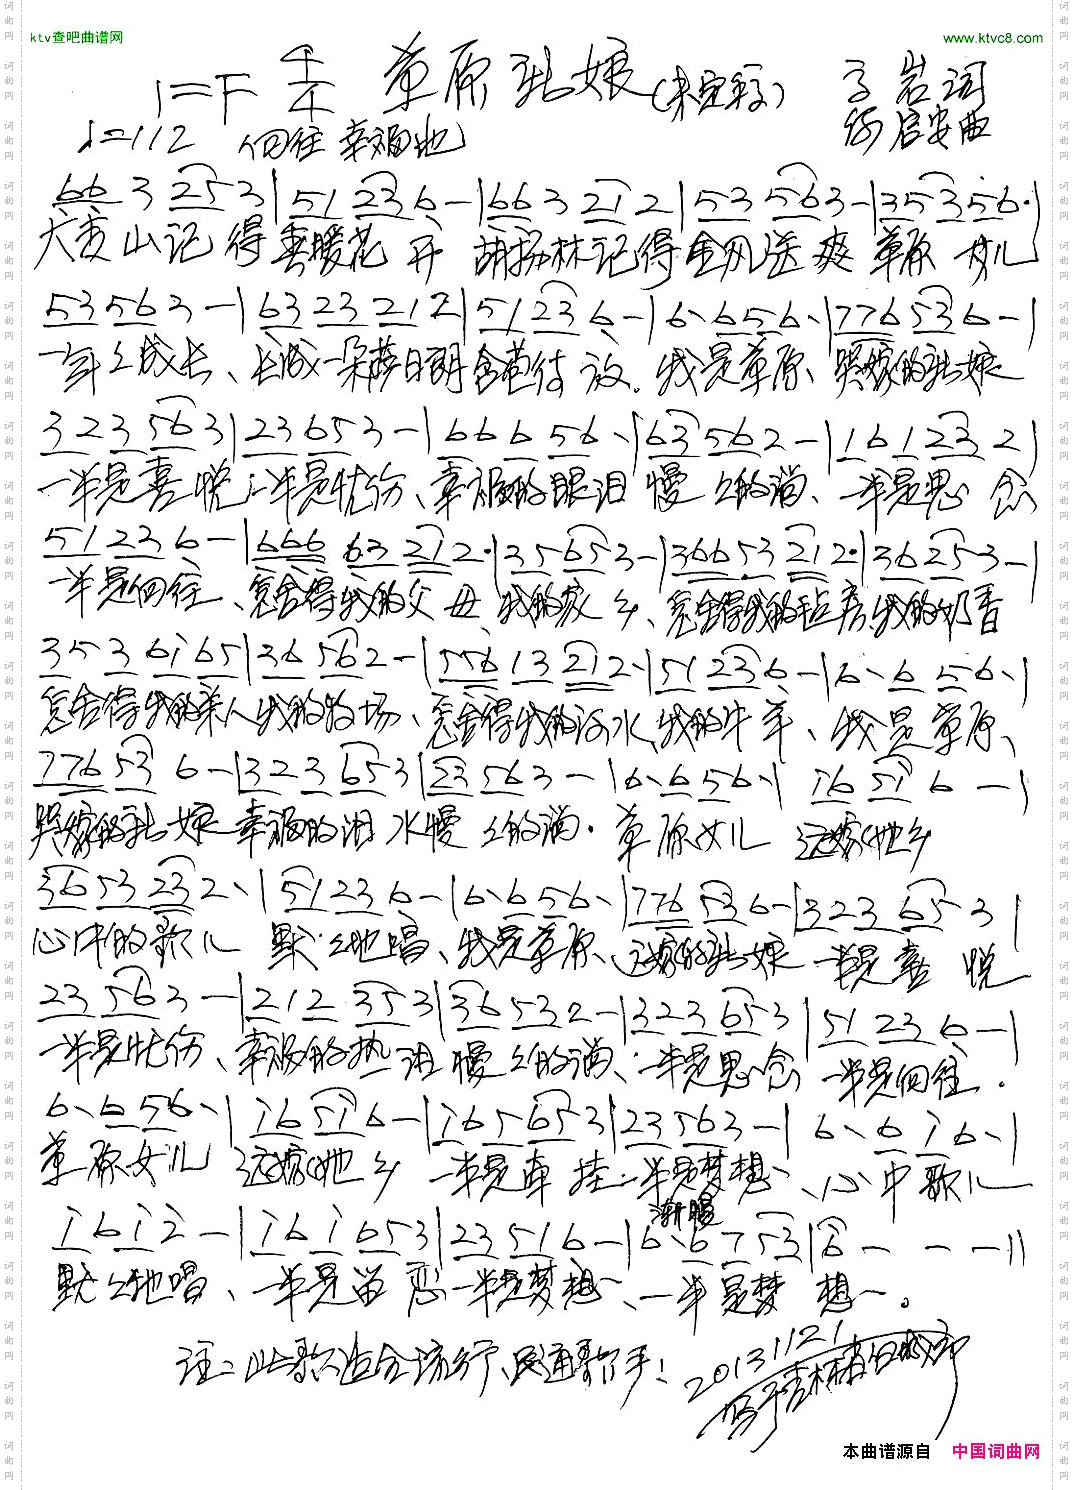 ktv查吧曲谱网
www.ktvc8.com
1=F 4/4 草原新娘(未定稿) 子岩词
♩=112 (向往 幸福地) 何启安曲
66 3 253|51 236-|663 212|53 563-|353 56·|
大青山记得春暖花开 胡杨林记得金风送爽 草原女儿
53563-|6323212|51236-|6·656·|776536-|
一年年成长、长成一朵萨日朗含苞待放。我是草原 哭嫁的新娘
323563|23653-|66656·|63562-|161232|
一半是喜悦 一半是忧伤、幸福的眼泪慢慢的淌、一半是思念
51236-|66663212·|35653-|36653212·|36253-|
一半是向往、怎舍得我的父母、我的家乡、怎舍得我的毡房、我的奶香
3536i65|36562-|55613212·|51236-|6·656·|
怎舍得我的亲人我的牧场、怎舍得我的河水、我的牛羊、我是草原、
776536-|323653|23563-|6·656·|i65i6-|
哭嫁的新娘 幸福的泪水慢慢的淌. 草原女儿 远嫁他乡
3653232·|51236-|6·656·|776536-|323653|
心中的歌儿 默默地唱、我是草原、远嫁的新娘 一半是喜悦
23563-|212353|36532-|323653|51236-|
一半是忧伤、幸福的热泪慢慢的淌、一半是思念 一半是向往.
6·656·|i65i6-|i65653|23563-|6·6i6·|
草原女儿 远嫁他乡 一半是牵挂 一半是梦想、心中歌儿
渐慢
i6i2-|i6i653|23516-|6·6753|6---||
默默地唱、一半是留恋 一半是梦想、一半是梦想。
注:此歌适合流行、民通歌手!
20131121
本曲谱源自 中国词曲网